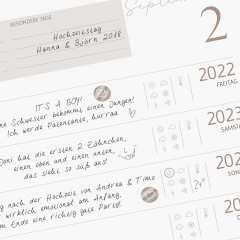 BESONDERE TAGE
Hochzeitstag
Hanna & Björn 2018
September
2
IT'S A BOY!
Schwester bekommt einen Jungen!
Ich werde Patentante, hurraa
2022
FREITAG
2023
Joni hat die ersten 2 Zähnchen,
einen oben and einen unten,
das sieht so süß aus!
nach der Hochzeit von Andrea & Timo
wirklich emotional am Anfang,
Ende eine richtig gute Party!